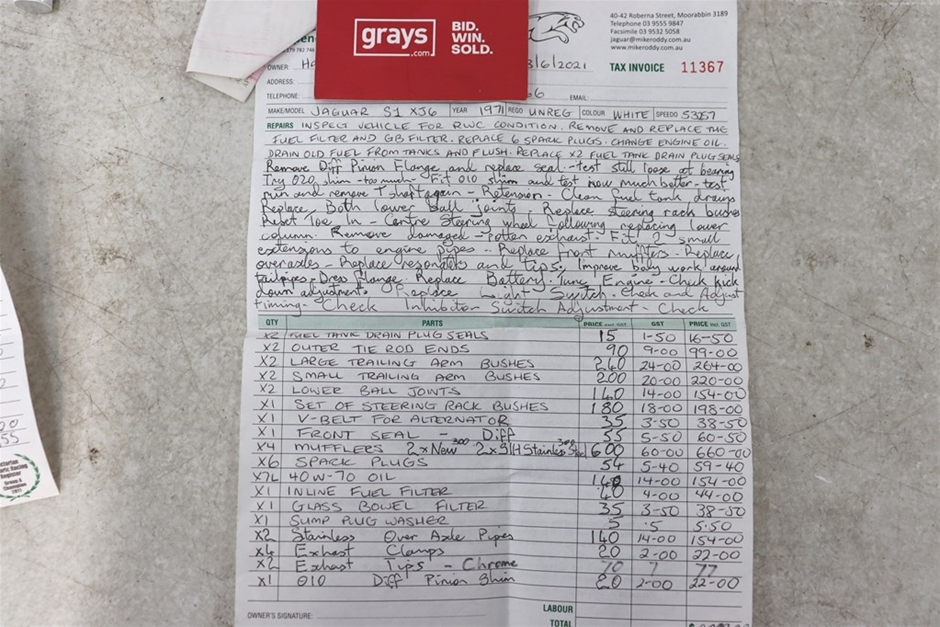 grays
.com
BID.
WIN.
SOLD.
40-42 Roberna Street, Moorabbin 3189
Telephone 03 9555 9847
Facsimile 03 9532 5058
jaguar@mikeroddy.com.au
www.mikeroddy.com.au
OWNER: 3/6/2021 TAX INVOICE 11367
ADDRESS:
TELEPHONE: 6 EMAIL:
MAKE/MODEL JAGUAR S1 XJ6 YEAR 1971 REGO UNREG COLOUR WHITE SPEEDO 53257
REPAIRS INSPECT VEHICLE FOR RWC CONDITION. REMOVE AND REPLACE THE
FUEL FILTER AND GB FILTER. REPLACE 6 SPARK PLUGS. CHANGE ENGINE OIL.
DRAIN OLD FUEL FROM TANKS AND FLUSH. REPLACE X2 FUEL TANK DRAIN PLUG SEALS
Remove Diff Pinion Flange and replace seal - test still loose at bearing
Try 020 shim - too much - Fit 010 shim and test now much better - test
run and remove again - Retension - Clean fuel tank drains
Replace Both lower ball joints. Replace steering rack bushes
Reset Toe In - Centre Steering wheel following replacing lower
column. Remove damaged - rotten exhaust. Fit 2 small
extensions to engine pipes - Replace front mufflers - Replace
over axles - Replace resonators and tips. Improve body work around
tailpipes - Dress Flange. Replace Battery. Tune Engine - Check kick
down adjustment. Replace Light Switch. Check and Adjust
timing - Check Inhibitor Switch Adjustment - Check
QTY PARTS PRICE excl. GST GST PRICE incl. GST
X2 FUEL TANK DRAIN PLUG SEALS 15 1-50 16-50
X2 OUTER TIE ROD ENDS 90 9-00 99-00
X2 LARGE TRAILING ARM BUSHES 240 24-00 264-00
X2 SMALL TRAILING ARM BUSHES 200 20-00 220-00
X2 LOWER BALL JOINTS 140 14-00 154-00
X1 SET OF STEERING RACK BUSHES 180 18-00 198-00
X1 V-BELT FOR ALTERNATOR 35 3-50 38-50
X1 FRONT SEAL - Diff 55 5-50 60-50
X4 MUFFLERS 2x New 300 2x S/H Stainless 300 600 60-00 660-00
X6 SPARK PLUGS 54 5-40 59-40
X7L 40W-70 OIL 140 14-00 154-00
X1 INLINE FUEL FILTER 40 4-00 44-00
X1 GLASS BOWEL FILTER 35 3-50 38-50
X1 SUMP PLUG WASHER 5 .5 5.50
X2 Stainless Over Axle Pipes 140 14-00 154-00
x4 Exhast Clamps 20 2-00 22-00
x2 Exhast Tips - Chrome 70 7 77
x1 010 Diff Pinion Shim 20 2-00 22-00
OWNER'S SIGNATURE: LABOUR
TOTAL